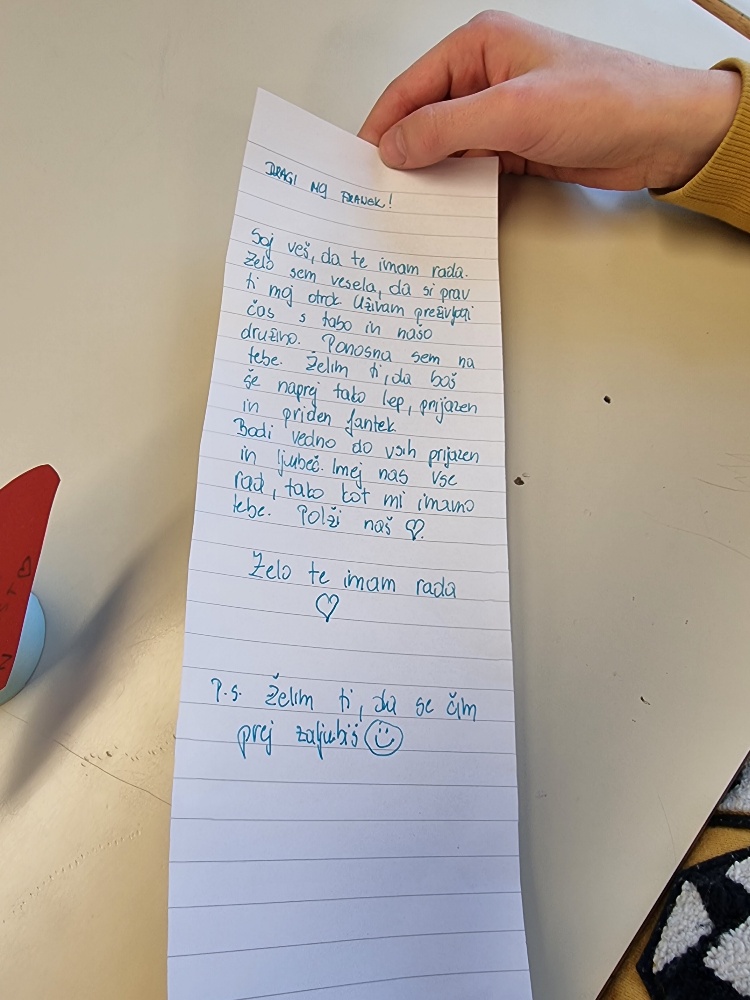 DRAGI MOJ FRANEK!
Saj veš, da te imam rada.
Zelo sem vesela, da si prav
ti moj otrok. Uživam preživljati
čas s tabo in našo
družino. Ponosna sem na
tebe. Želim ti, da boš
še naprej tako lep, prijazen
in priden fantek.
Bodi vedno do vsih prijazen
in ljubeč. Imej nas vse
rad, tako kot mi imamo
tebe. Polži naš ♡.
Zelo te imam rada
♡
P.s. Želim ti, da se čim
prej zaljubiš ☺